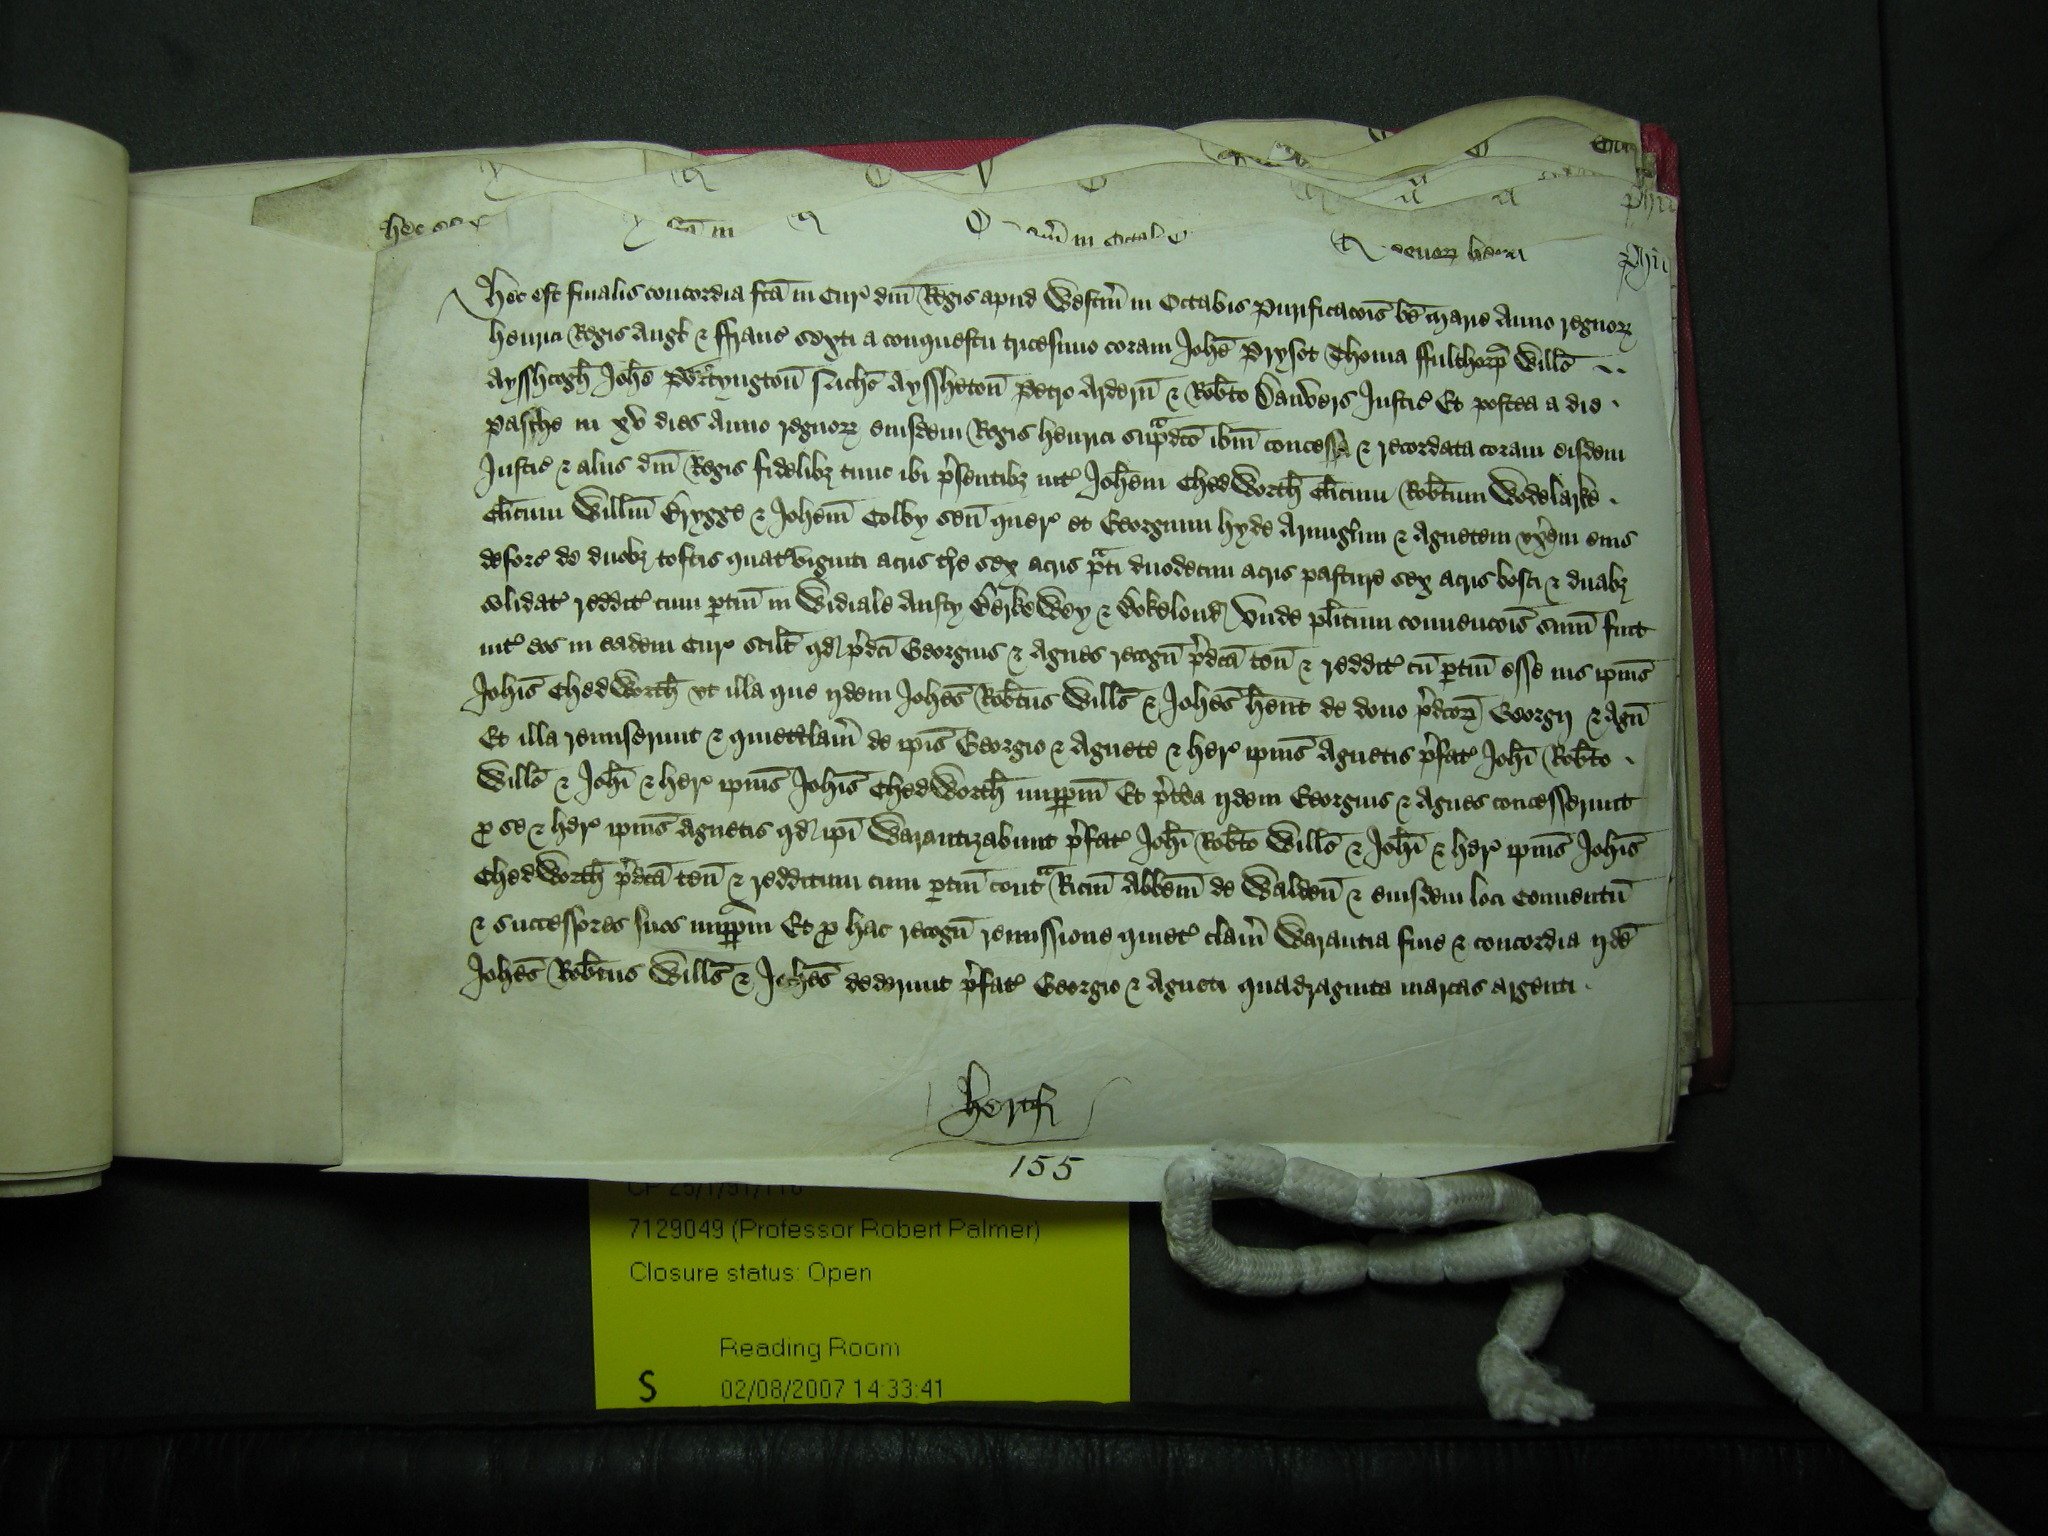 hec
in Octab
henri
Phi
Hec est finalis concordia fcā in Cur' dnī Regis apud Westm̄ in Octabis Purificacōis bē Marie Anno regnoꝝ
Henrici Regis Angl' & ffranc' sexti a conquestu tricesimo coram Johē Prysot Thoma ffulthorp̄ Willō
Ayssheogh̄ Johē Portyngton̄ Nichō Ayssheton̄ Petro Ardern̄ & Rob̄to Danvers Justic' Et postea a die
Pasche in xv dies Anno regnoꝝ eiusdem Regis Henrici sup̄dcō ib̄m concessa & recordata coram eisdem
Justic' & aliis dnī Regis fidelibꝫ tunc ibi p̄sentibꝫ int' Joh̄em Chedworth̄ Cl̄icum Rob̄tum Wodelarke
Cl̄icum Willm̄ Brygge & Johem̄ Colby sen̄ quer' et Georgium Hyde Armig̃um & Agnetem vx̄em eius
deforc' de duobꝫ toftis quat'viginti acris t̄re sex acris p̄ti duodecim acris pasture sex acris bosci & duabꝫ
solidat' reddit' cum ptin̄ in Widiale Ansty Berkewey & Bokelond Vnde pl̄itum conuencōis sum̄ fuit
int' eos in eadem Cur' scil̄t qd p̄dcī Georgius & Agnes recogn̄ p̄dcā ten̄ & reddit' cū ptin̄ esse ius ipīus
Joh̄is Chedworth̄ vt illa que ijdem Joh̄es Rob̄tus Will̄s & Joh̄es hēnt de dono p̄dcōꝝ Georgij & Agn̄
Et illa remiserunt & quietclam̄ de ipīs Georgio & Agnete & her' ipīus Agnetis p̄fat' Joh̄i Rob̄to
Willō & Joh̄i & her' ipīus Joh̄is Chedworth̄ imppm̄ Et p̄t̄ea ijdem Georgius & Agnes concesserunt
p se & her' ipīus Agnetis qd ipī Warantizabunt p̄fat' Joh̄i Rob̄to Willō & Joh̄i & her' ipīus Joh̄is
Chedworth̄ p̄dcā ten̄ & redditum cum ptin̄ contᵃ Ricm̄ Abb̄em de Walden̄ & eiusdem loci Conuentū
& successores suos imppm̄ Et p hac recogn̄ remissione quiet' clam̄ Warantia fine & concordia ijdē
Joh̄es Rob̄tus Will̄s & Joh̄es dederunt p̄fat' Georgio & Agneti quadraginta marcas argenti
Hertf
155
CP 25/1/91/116
7129049 (Professor Robert Palmer)
Closure status: Open
Reading Room
S 02/08/2007 14:33:41